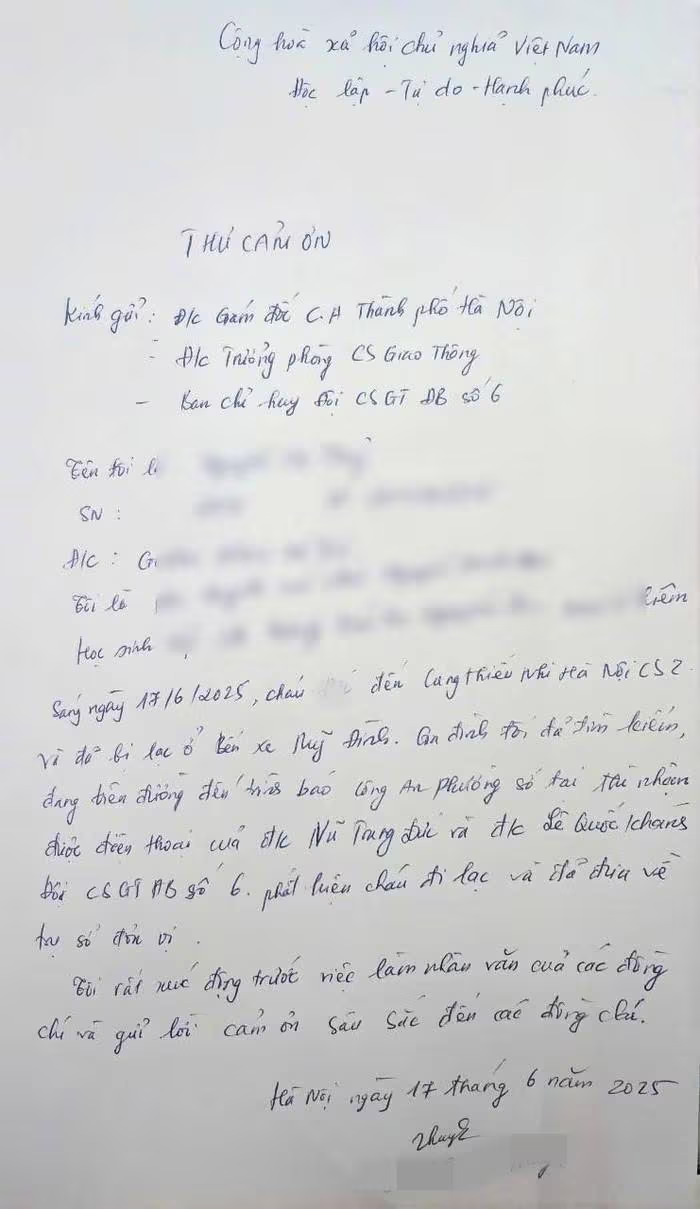 Cộng hoà xả hội chủ nghiả Việt Nam
Độc lập - Tự do - Hạnh phúc.
THƯ CẢM ƠN
Kính gửi: Đ/c Gám đốc C.A Thành phố Hà Nội
- Đ/c Trưởng phòng CS Giao Thông
- Ban chỉ huy Đội CSGT ĐB số 6
Tên tôi l
SN :
Đ/c : G
Tôi là
Học sinh
Sáng ngày 17/6/2025, cháu đến Cung thiếu Nhi Hà Nội CS2.
và đã bị lạc ở Bến xe Mỹ Đình. Gia đình tôi đã tìm kiếm,
đang trên đường đến trình báo Công An phường sở tại thì nhận
được điện thoại cuả đ/c Vũ Trung Đức và đ/c Lê Quốc Khánh
Đội CSGT ĐB số 6. phát hiện cháu đi lạc và đã đưa về
trụ sở đơn vị.
Tôi rất xúc động trước việc làm nhân văn cuả các đồng
chí và gửi lời cảm ơn sâu sắc đến các đồng chí.
Hà Nội ngày 17 tháng 6 năm 2025